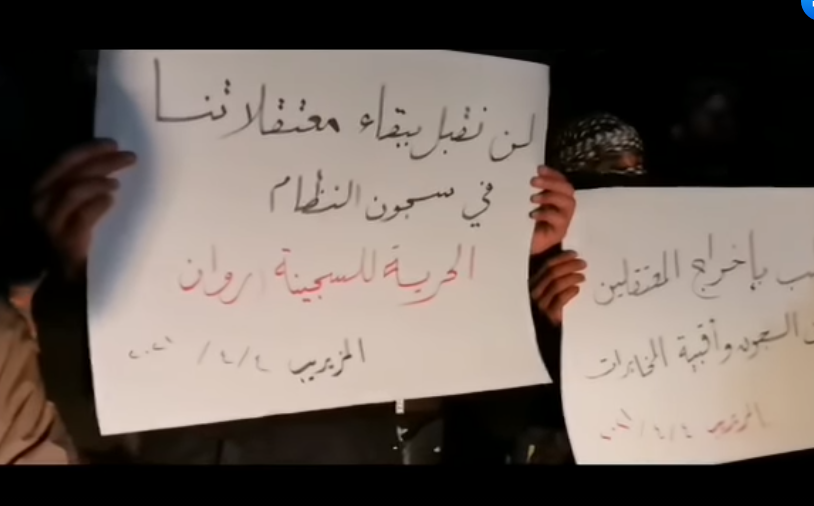 لن نقبل ببقاء معتقلاتنا
في سجون النظام
الحرية للسجينة روان
المزيريب ٤/٤/٢٠٢١
بإخراج المعتقلين
السجون وأقبية المخابرات
المزيريب ٤/٤/٢٠٢١